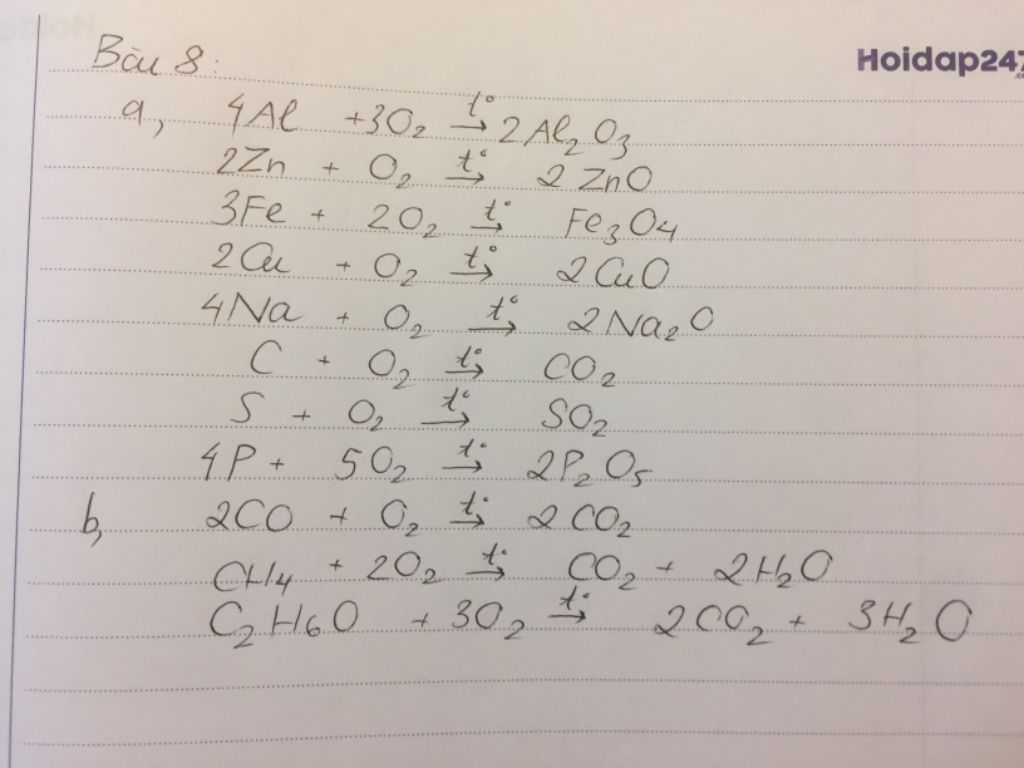 Bài 8:
Hoidap247
a, 4Al + 3O₂ t°→ 2Al₂O₃
2Zn + O₂ t°→ 2ZnO
3Fe + 2O₂ t°→ Fe₃O₄
2Cu + O₂ t°→ 2CuO
4Na + O₂ t°→ 2Na₂O
C + O₂ t°→ CO₂
S + O₂ t°→ SO₂
4P + 5O₂ t°→ 2P₂O₅
b, 2CO + O₂ t°→ 2CO₂
CH₄ + 2O₂ t°→ CO₂ + 2H₂O
C₂H₆O + 3O₂ t°→ 2CO₂ + 3H₂O